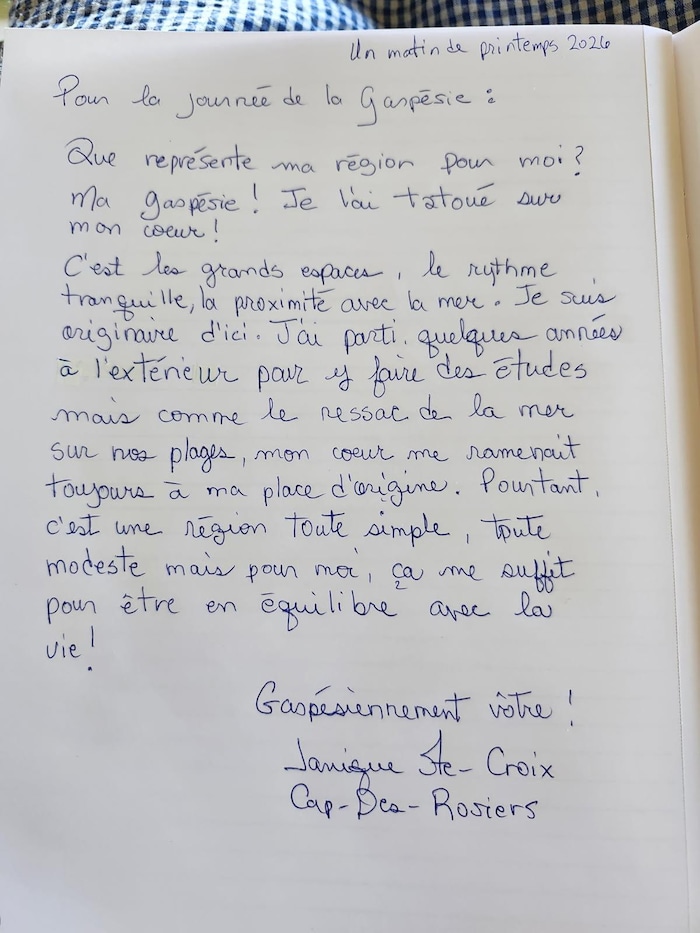 Un matin de printemps 2026
Pour la journée de la Gaspésie :
Que représente ma région pour moi ?
Ma gaspésie ! Je l'ai tatoué sur
mon coeur !
C'est les grands espaces, le rythme
tranquille, la proximité avec la mer. Je suis
originaire d'ici. J'ai parti quelques années
à l'extérieur pour y faire des études
mais comme le ressac de la mer
sur nos plages, mon coeur me ramenait
toujours à ma place d'origine. Pourtant,
c'est une région toute simple, toute
modeste mais pour moi, ça me suffit
pour être en équilibre avec la
vie !
Gaspésiennement vôtre !
Janique Ste-Croix
Cap-Des-Rosiers